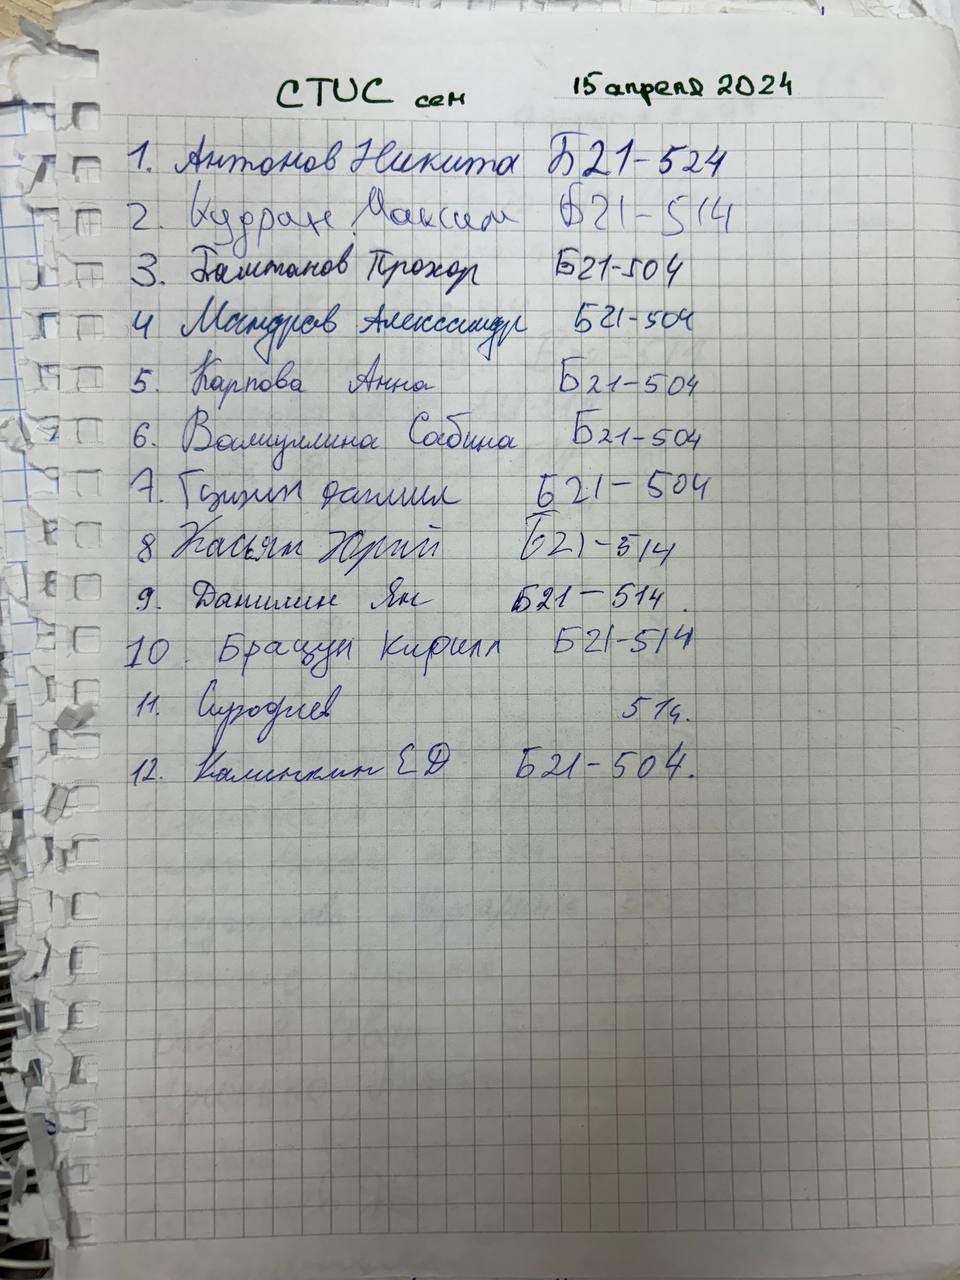 СТИС сем 15 апреля 2024
1. Антонов Никита Б21-524
2. Кудран Максим Б21-514
3. Баштанов Прохор Б21-504
4 Мандров Александр Б21-504
5. Карпова Анна Б21-504
6. Валиуллина Сабина Б21-504
7. Даниил Б21-504
8 Касьян Юрий Б21-514
9. Данилин Ян Б21-514.
10. Брацун Кирилл Б21-514
11. 514.
12. Калинкин ЕД Б21-504.